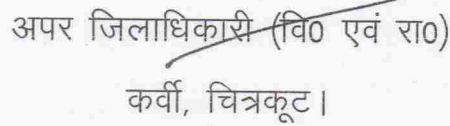 अपर जिलाधिकारी (वि0 एवं रा0)
कर्वी, चित्रकूट।